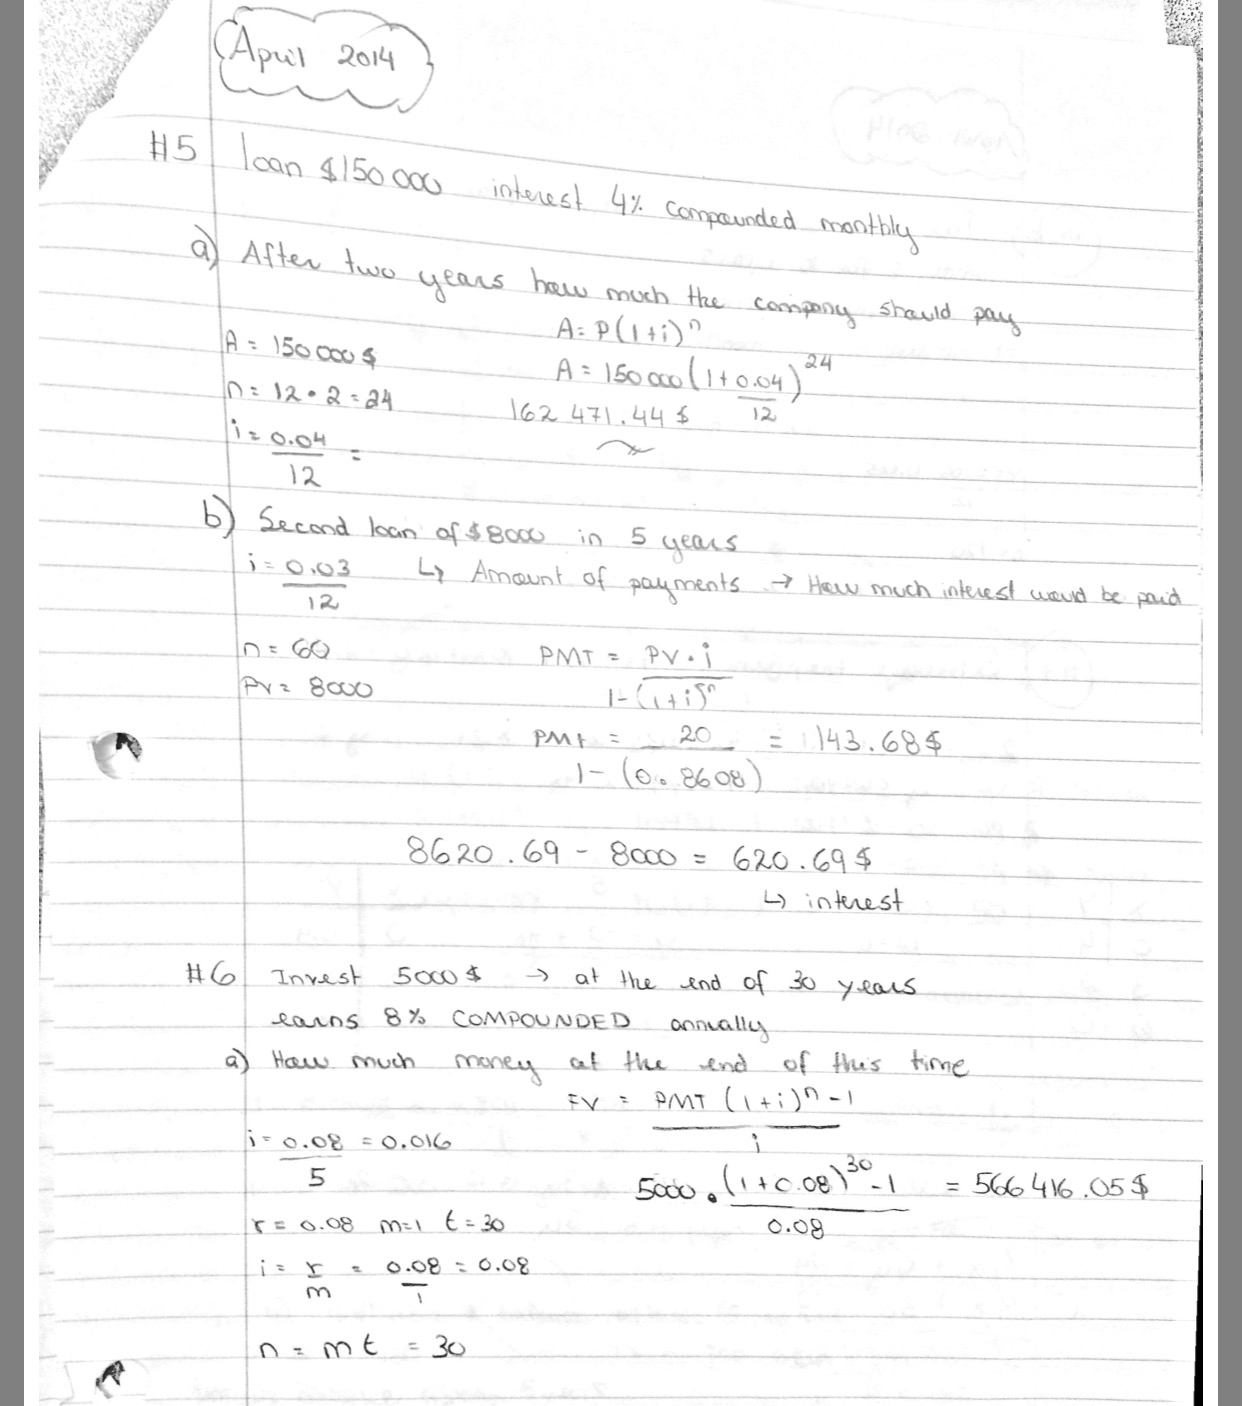 April 2014
#5 loan $150 000 interest 4% compounded monthly
a) After two years how much the company should pay
A = P(1+i)^n
A = 150 000 $
A = 150 000 (1 + 0.04/12)^24
n = 12 • 2 = 24
162 471.44 $
i = 0.04/12 =
b) Second loan of $8000 in 5 years
i = 0.03/12 ↳ Amount of payments → How much interest would be paid
n = 60
PMT = PV • i / 1-(1+i)^n
PV = 8000
PMT = 20 / 1-(0.8608) = 143.68 $
8620.69 - 8000 = 620.69 $
↳ interest
#6 Invest 5000 $ → at the end of 30 years
earns 8% COMPOUNDED annually
a) How much money at the end of this time
FV = PMT (1+i)^n - 1 / i
i = 0.08/5 = 0.016
5000 • (1+0.08)^30 - 1 / 0.08 = 566 416.05 $
r = 0.08 m=1 t = 30
i = r/m = 0.08/1 = 0.08
n = mt = 30